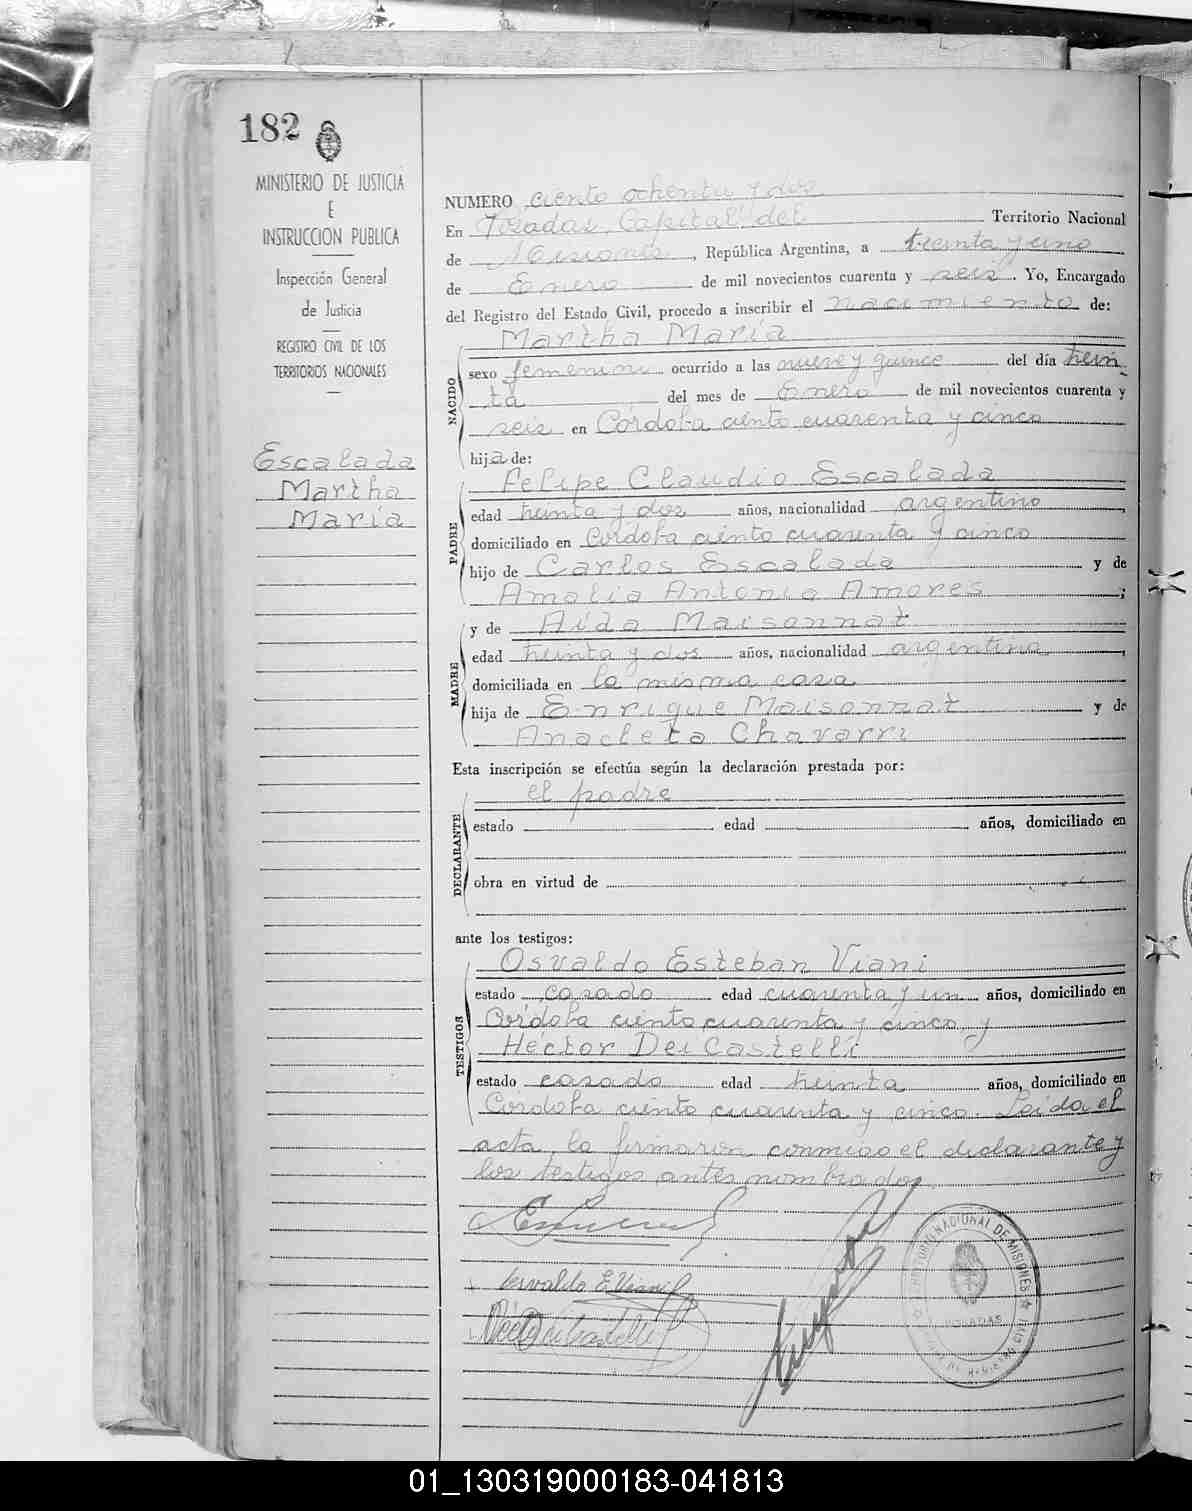 182
MINISTERIO DE JUSTICIA
E
INSTRUCCION PUBLICA
Inspección General
de Justicia
REGISTRO CIVIL DE LOS
TERRITORIOS NACIONALES
Escalada
Martha
María
NUMERO ciento ochenta y dos
En Posadas, Capital del Territorio Nacional
de Misiones, República Argentina, a treinta y uno
de Enero de mil novecientos cuarenta y seis. Yo, Encargado
del Registro del Estado Civil, procedo a inscribir el nacimiento de:
NACIDO
Martha María
sexo femenino ocurrido a las nueve y quince del día trein
ta del mes de Enero de mil novecientos cuarenta y
seis en Córdoba ciento cuarenta y cinco
hija de:
PADRE
Felipe Claudio Escalada
edad treinta y dos años, nacionalidad argentino,
domiciliado en Córdoba ciento cuarenta y cinco
hijo de Carlos Escalada y de
Amalia Antonia Amores;
MADRE
y de Aida Maisonnat
edad treinta y dos años, nacionalidad argentina,
domiciliada en la misma casa
hija de Enrique Maisonnat y de
Anacleta Chavarri
Esta inscripción se efectúa según la declaración prestada por:
DECLARANTE
el padre
estado edad años, domiciliado en
obra en virtud de
ante los testigos:
TESTIGOS
Osvaldo Esteban Viani
estado casado edad cuarenta y un años, domiciliado en
Córdoba ciento cuarenta y cinco y
Hector Dei Castelli
estado casado edad treinta años, domiciliado en
Córdoba ciento cuarenta y cinco. Leida el
acta la firmaron conmigo el declarante y
los testigos antes nombrados.
Osvaldo E. Viani
NACIONAL DE MISIONES
POSADAS
01_130319000183-041813